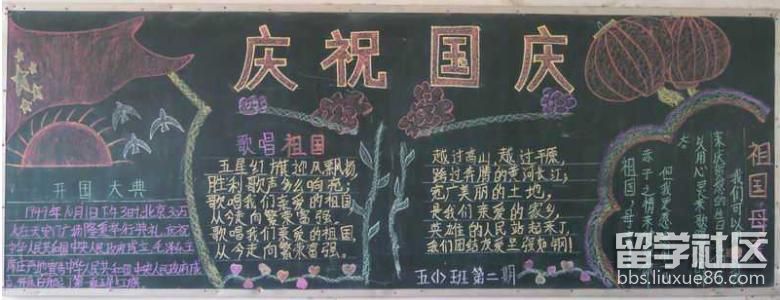 庆祝国庆
开国大典
1949年10月1日下午3时,北京30万
人在天安门广场隆重举行典礼,
中华人民共和国中央人民政府成立,毛泽东
歌唱祖国
五星红旗迎风飘扬,
胜利歌声多么响亮;
歌唱我们亲爱的祖国
从今走向繁荣富强。
歌唱我们亲爱的祖国
从今走向繁荣富强。
越过高山,越过平原,
跨过奔腾的黄河长江;
宽广美丽的土地,
是我们亲爱的家乡,
英雄的人民站起来了,
我们团结友爱坚强如钢
五(1)班第二期
祖国,母
我们
来庆贺您的生
久用心灵来歌
但我更愿
赤子之情来
祖国,母
留学社区
bbs.liuxue86.com